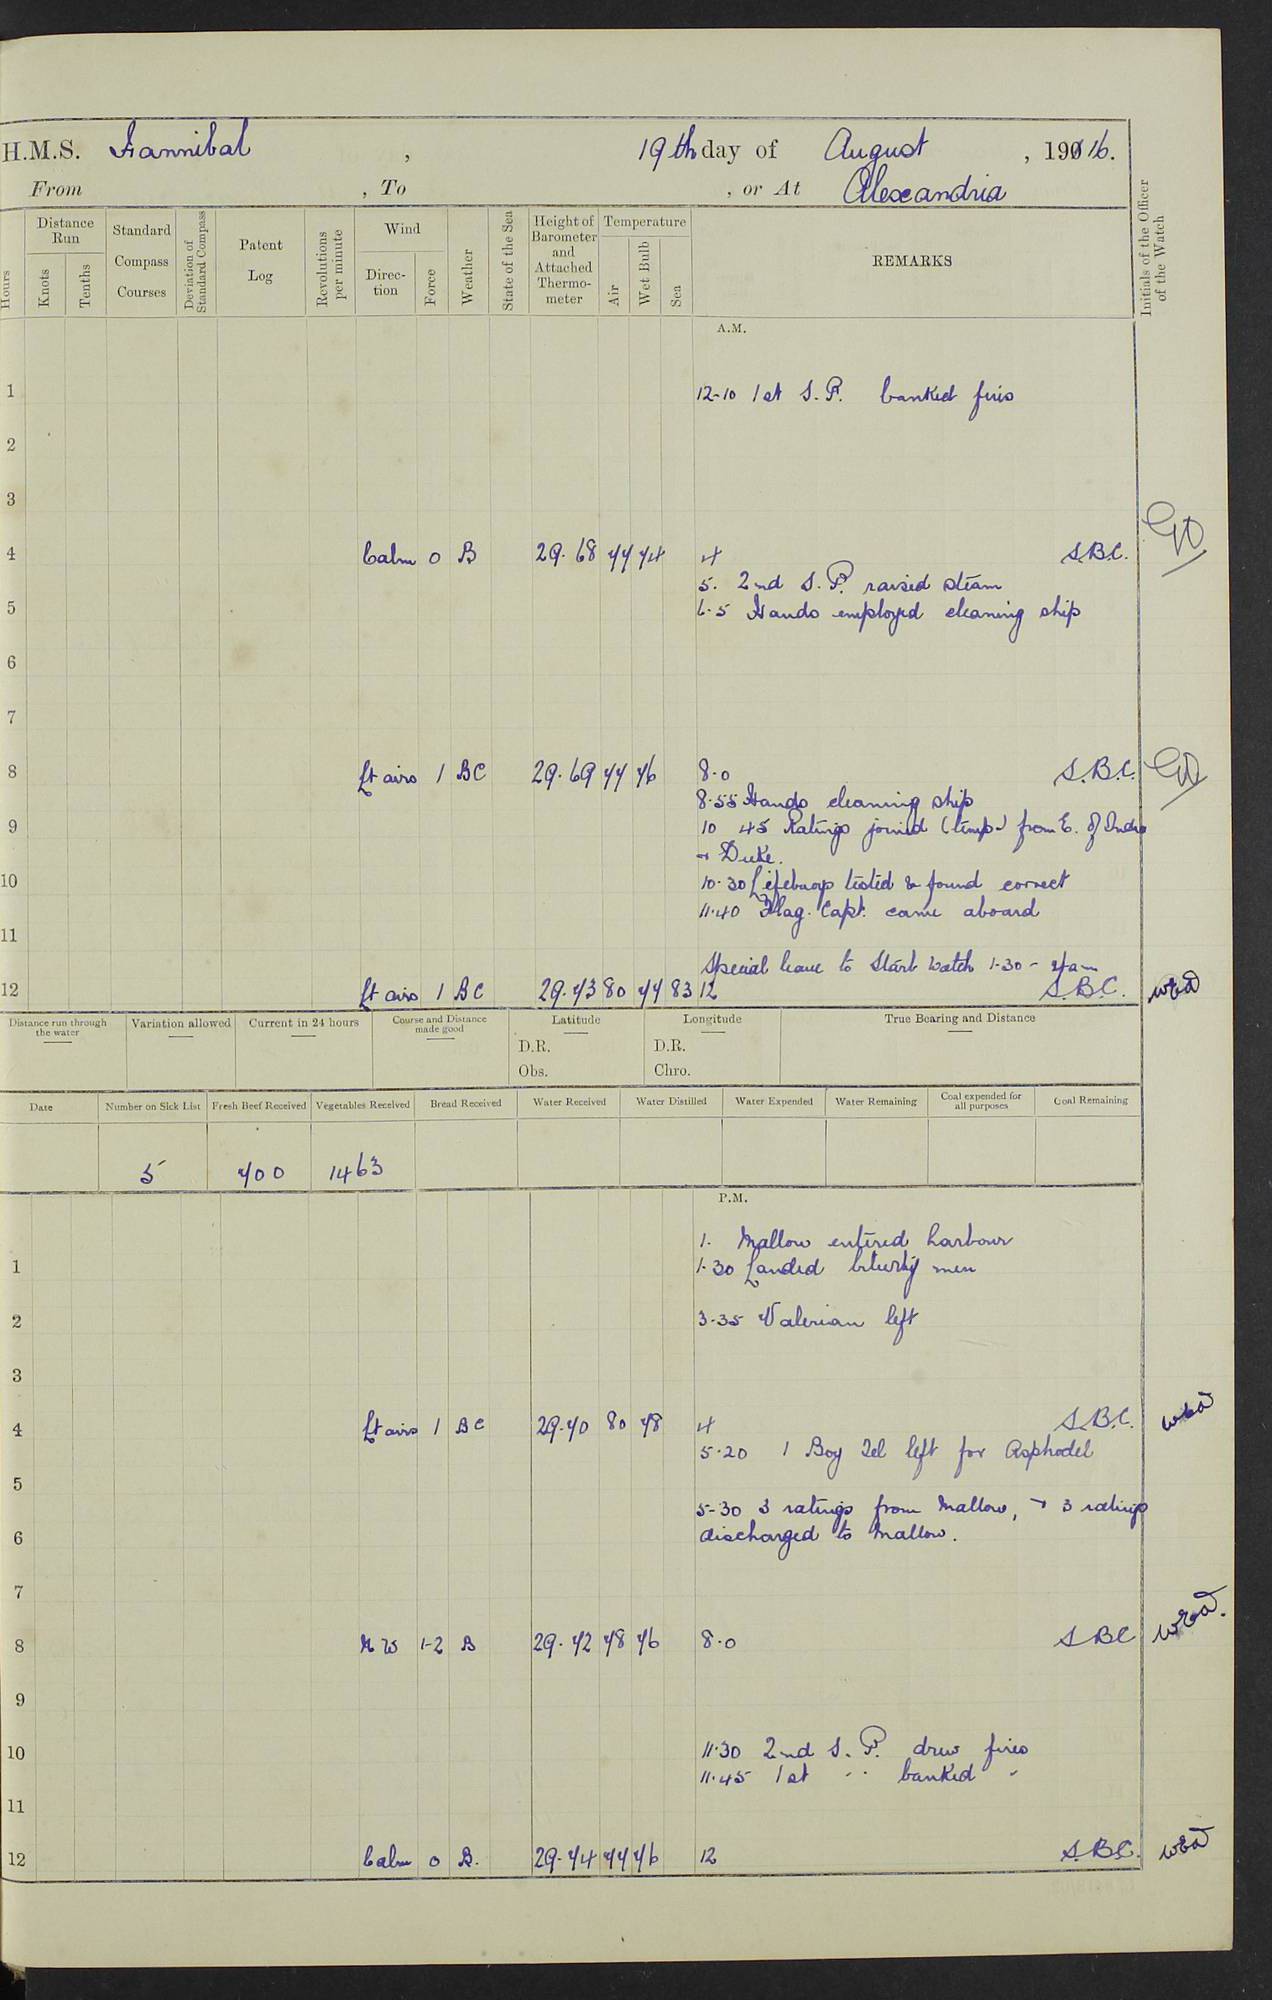 H.M.S. Hannibal , 19th day of August , 1916.
From , To , or At Alexandria
Hours
Distance Run
Knots
Tenths
Standard Compass Courses
Deviation of Standard Compass
Patent Log
Revolutions per minute
Wind
Direction
Force
Weather
State of the Sea
Height of Barometer and Attached Thermometer
Temperature
Air
Wet Bulb
Sea
REMARKS
Initials of the Officer of the Watch
A.M.
1 12-10 1st S.P. banked fires
2
3
4 Calm 0 B 29.68 77 74 4 S.B.C.
5. 2nd S.P. raised steam
5 6.5 Hands employed cleaning ship
6
7
8 Lt airs 1 BC 29.69 77 76 8.0 S.B.C.
8.55 Hands cleaning ship
9 10 45 Ratings joined (temp) from E. of India
+ Duke.
10 10.30 Lifebuoys tested & found correct
11.40 Flag. Capt. came aboard
11
Special leave to Starb watch 1.30 - 7 a m
12 Lt airs 1 BC 29.73 80 77 83 12 S.B.C.
Distance run through the water
Variation allowed
Current in 24 hours
Course and Distance made good
Latitude
D.R.
Obs.
Longitude
D.R.
Chro.
True Bearing and Distance
Date
Number on Sick List
Fresh Beef Received
Vegetables Received
Bread Received
Water Received
Water Distilled
Water Expended
Water Remaining
Coal expended for all purposes
Coal Remaining
5 700 1463
P.M.
1. Mallow entered harbour
1 1.30 Landed liberty men
2 3.35 Valerian left
3
4 Lt airs 1 BC 29.70 80 78 4 S.B.C.
5.20 1 Boy Tel left for Asphodel
5
5-30 3 ratings from Mallow, + 3 ratings
6 discharged to Mallow.
7
8 NW 1-2 B 29.72 78 76 8.0 S.B.C
9
10 11.30 2nd S.P. drew fires
11.45 1st " banked "
11
12 Calm 0 B. 29.74 77 76 12 S.B.C.